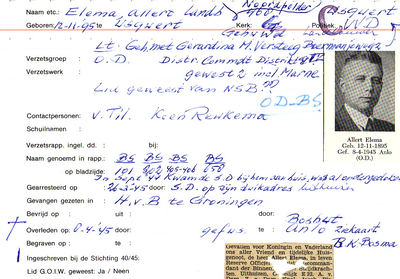 Naam etc.: Elema, Allert Landb Noordpolder Usquert
Geboren: 12-11-95 te Usquert Kerk: Politiek: VD
Gehuwd Landbouwer
Lt. Geh. met Gerardina M. Versteeg
Verzetsgroep : O.D. Distr. Commdt District
Verzetswerk : gewest 2 incl. Marne
Lid geweest van NSB?
OD-BS
Contactpersonen: v. Til. Koen Renkema
Schuilnamen :
Verzetsrapp. ingel. dd. :
Naam genoemd in rapp.: BS BS BS BS
op bladzijde: 101 202 405-406 050
In Sept. 44 kwam de S.D. bij hem aan huis, was al ondergedoken
Gearresteerd op 26-3-45 door: S.D. op zijn duikadres
Gevangen gezeten in : H.v.B te Groningen
Bevrijd op : uit door:
Overleden op : 8-4-45 te gefus. Anlo ziekaart
Begraven op : te B.K. Posma
Ingeschreven bij de Stichting 40/45:
Lid G.O.I.W. geweest: Ja / Neen
Allert Elema
Geb. 12-11-1895
Gef. 8-4-1945 Anlo
(O.D.)
Gevallen voor Koningin en Vaderland
ons aller Vriend en tijdelijke Huis-
genoot, de heer Allert Elema, in leven
Reserve Officier
commandant
der Binnenl.
Strijdkrachten.